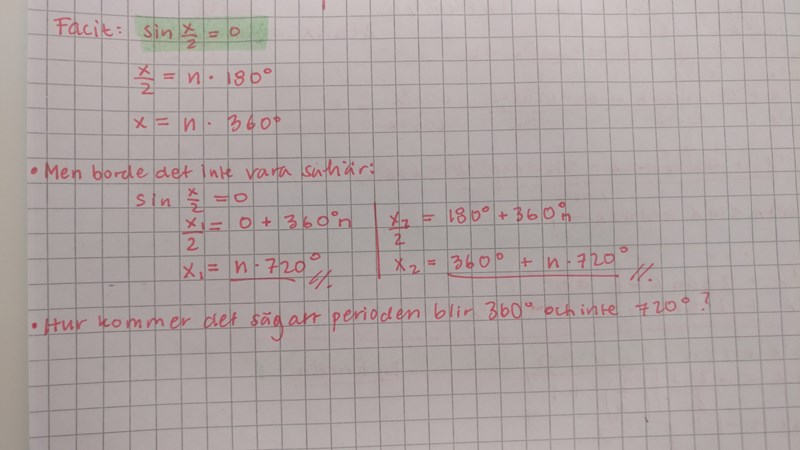 Facit: sin x/2 = 0
x/2 = n · 180°
x = n · 360°
• Men borde det inte vara såhär:
sin x/2 = 0
x₁/2 = 0 + 360°n | x₂/2 = 180° + 360°n
x₁ = n · 720° // | x₂ = 360° + n · 720° //
• Hur kommer det sig att perioden blir 360° och inte 720°?